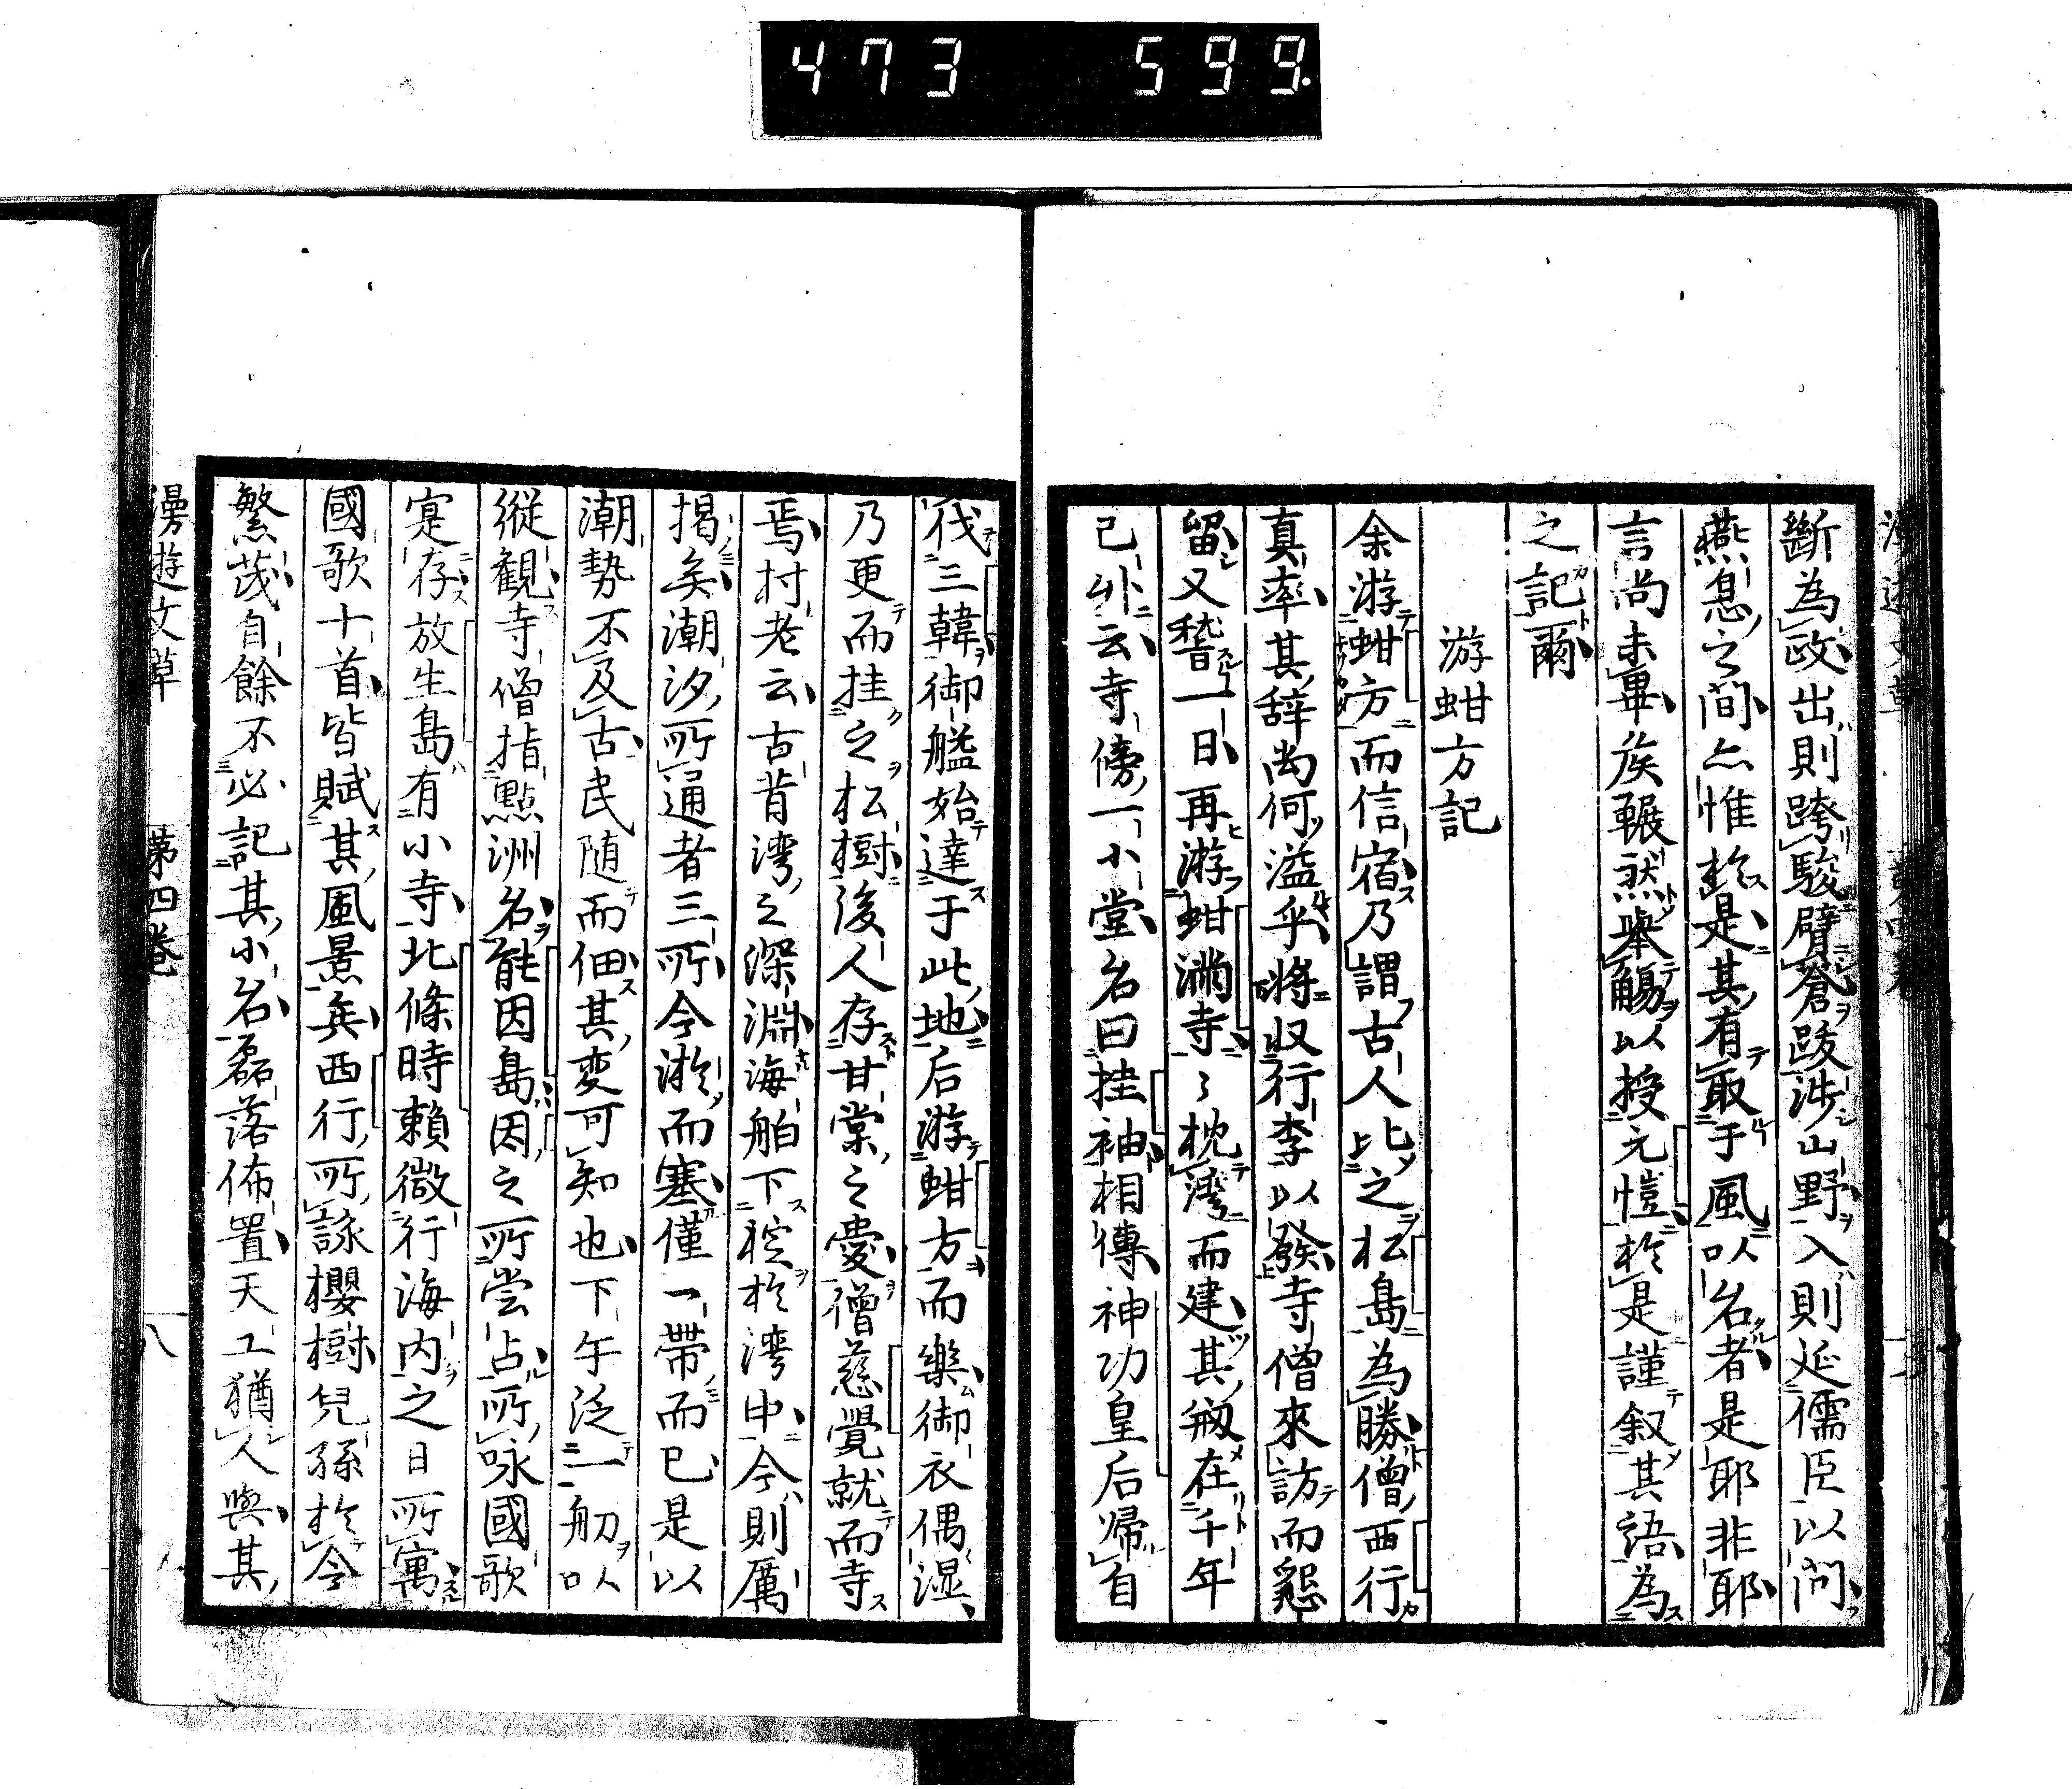 473 599.
斷為政出則跨駿臂蒼跋涉山野入則延儒臣以問
燕息之間亦惟於是其有取于風以名者是耶非耶
言尚未畢侯囅然舉觴以授元愷於是謹叙其語為
之記爾
游蚶方記
余游蚶方而信宿乃謂古人比之松島為勝僧西行
真率其辞尚何溢乎將収行李以発寺僧來訪而懇
留又稽一日再游蚶満寺々枕湾而建其剏在千年
已外云寺傍一小堂名曰挂袖相傳神功皇后帰自
伐三韓御艦始達于此地后游蚶方而樂御衣偶湿
乃更而挂之松樹後人存甘棠之愛僧慈覺就而寺
焉村老云古昔湾之深淵海舶下椗於湾中今則厲
揭矣潮汐所通者三所今淤而塞僅一帶而已是以
潮勢不及古民随而佃其変可知也下午泛一舠以
縱観寺僧指點洲名能因島因之所嘗占所咏國歌
寔存放生島有小寺北條時賴微行海内之日所寓
國歌十首皆賦其風景矣西行所詠櫻樹兒孫於今
繁茂自餘不必記其小名磊落佈置天工猶人與其
漫遊文草 第四卷 八